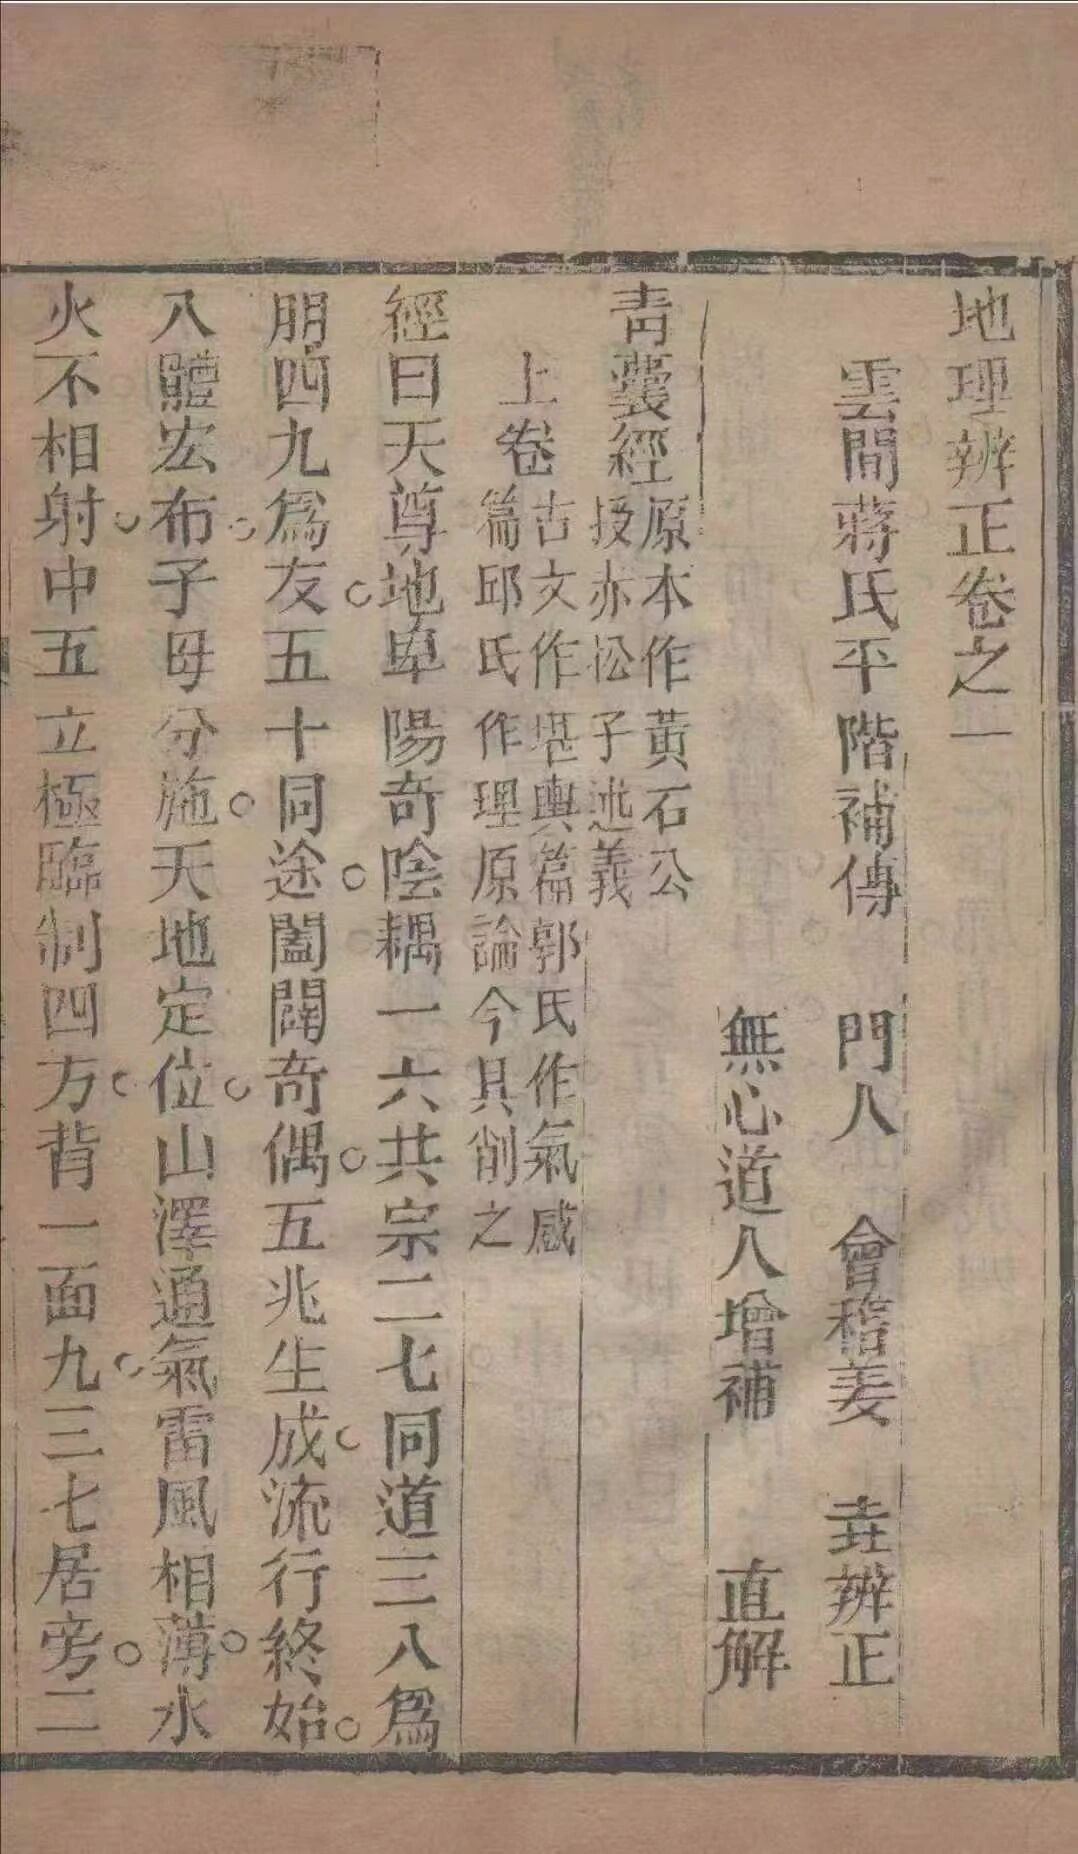 地理辨正卷之一
雲間蔣氏平階補傳 門人 會稽姜 垚辨正
無心道人增補 直解
青囊經原本作黃石公
授赤松子述義
上卷古文作堪輿篇郭氏作氣感
篇邱氏作理原論今具削之
經曰天尊地卑陽奇陰耦一六共宗二七同道三八爲
朋四九爲友五十同途闔闢奇偶五兆生成流行終始
八體宏布子母分施天地定位山澤通氣雷風相薄水
火不相射中五立極臨制四方背一面九三七居旁二